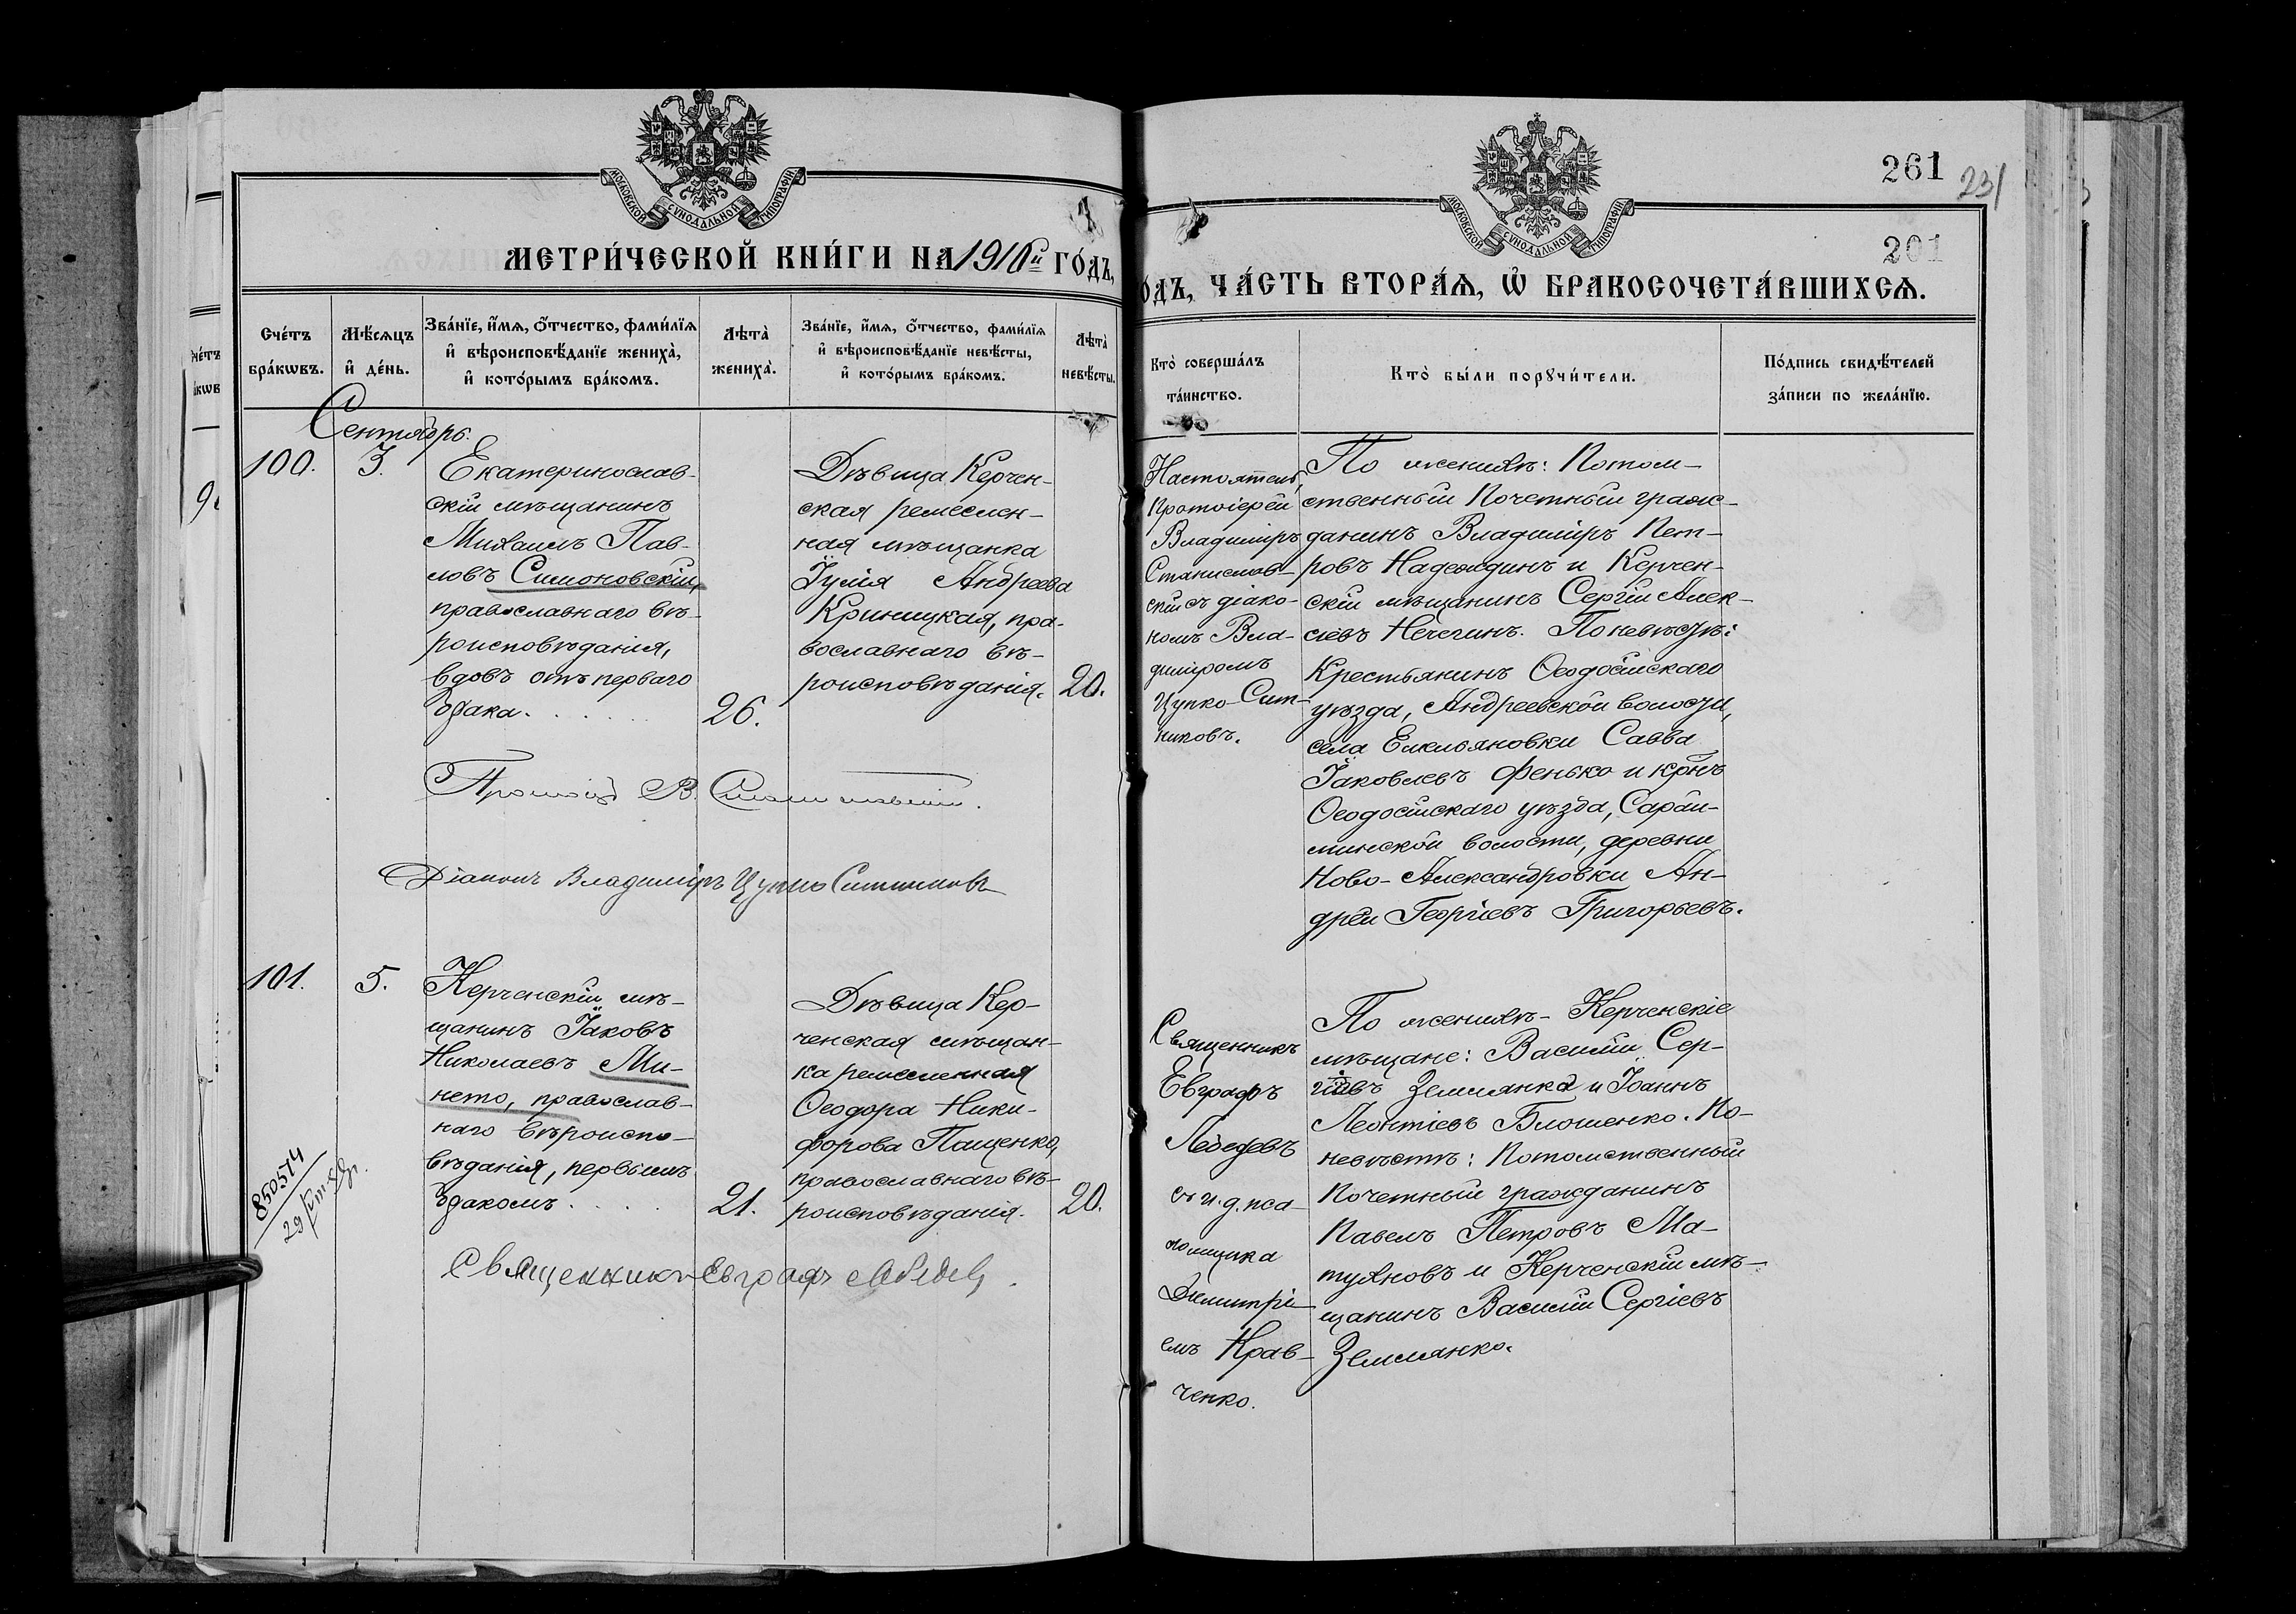 МОСКОВСКОЙ СѴНОДАЛЬНОЙ ТИПОГРАФІИ
МЕТРИ́ЧЕСКОЙ КНИ́ГИ НА 1910й ГО́ДЪ,
Сче́тъ бра́кѡвъ.
Мѣ́сяцъ и҆ де́нь.
Зва́нїе, и҆́мѧ, ѻ҆́тчество, фами́лїѧ
и҆ вѣроисповѣ́данїе жениха̀,
и҆ кото́рымъ бра́комъ.
Лѣта̀ жениха̀.
Зва́нїе, и҆́мѧ, ѻ҆́тчество, фами́лїѧ
и҆ вѣроисповѣ́данїе невѣ́сты,
и҆ кото́рымъ бра́комъ.
Лѣта̀ невѣ́сты.
Сентябрь.
100.
3.
Екатеринослав-
скій мѣщанинъ
Михаилъ Пав-
ловъ Симоновскій,
православнаго вѣ-
роисповѣданія,
вдовъ отъ перваго
брака.
26.
Дѣвица Керчен-
ская ремеслен-
ная мѣщанка
Іулія Андреева
Криницкая, пра-
вославнаго вѣ-
роисповѣданія.
20.
В. Станиславскій.
Діаконъ Владиміръ Цупко Ситниковъ
101.
5.
Керченскій мѣ-
щанинъ Іаковъ
Николаевъ Ми-
нето, православ-
наго вѣроиспо-
вѣданія, первымъ
бракомъ
21.
Дѣвица Кер-
ченская мѣщан-
ка ремесленная
Ѳеодора Ники-
форова Пащенко,
православнаго вѣ-
роисповѣданія.
20.
850514
Священникъ Евграфъ Лебедевъ.
МОСКОВСКОЙ СѴНОДАЛЬНОЙ ТИПОГРАФІИ
261
231
261
ОДЪ, ЧА́СТЬ ВТОРА́Ѧ, Ѡ҆ БРАКОСОЧЕТА́ВШИХСѦ.
Кто̀ соверша́лъ
та́инство.
Кто̀ бы́ли порꙋчи́тели.
По́дпись свидѣ́телей
за́писи по жела́нїю.
Настоятель,
Протоіерей
Владиміръ
Станислав-
скій съ діако-
номъ Вла-
диміромъ
Цупко-Сит-
никовъ.
По женихѣ: Потом-
ственный Почетный граж-
данинъ Владиміръ Пет-
ровъ Надеждинъ и Керчен-
скій мѣщанинъ Сергій Алек-
сіевъ Нечегинъ. По невѣстѣ:
Крестьянинъ Ѳеодосійскаго
уѣзда, Андреевской волости,
села Емельяновки Савва
Іаковлевъ Фенько и крнъ
Ѳеодосійскаго уѣзда, Сарай-
минской волости, деревни
Ново-Александровки Ан-
дрей Георгіевъ Григорьевъ.
Священникъ
Евграфъ
Лебедевъ
съ и. д. пса-
ломщика
Димитрі-
емъ Крав-
ченко.
По женихѣ - Керченскіе
мѣщане: Василій Сер-
гіевъ Землянка и Іоаннъ
Леонтіевъ Блошенко. По
невѣстѣ: Потомственный
Почетный гражданинъ
Павелъ Петровъ Ма-
туяновъ и Керченскій мѣ-
щанинъ Василій Сергіевъ
Землянко.